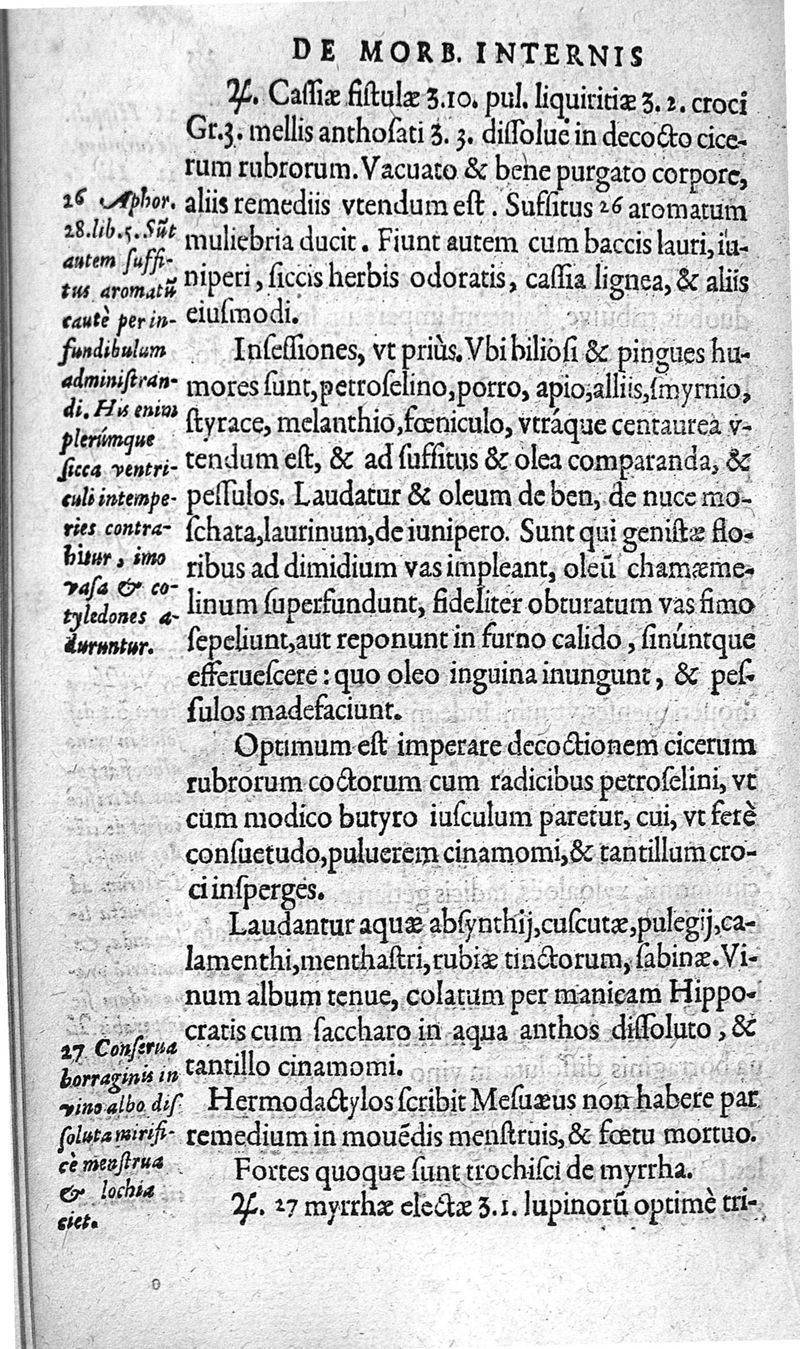 DE MORB. INTERNIS
℞. Caſſiæ fiſtulæ ʒ.10. pul. liquiritiæ ʒ. 2. croci
Gr.3. mellis anthoſati ʒ. 3. diſſolue in decocto cice-
rum rubrorum. Vacuato & bene purgato corpore,
aliis remediis vtendum eſt. Suffitus 26 aromatum
muliebria ducit. Fiunt autem cum baccis lauri, iu-
niperi, ſiccis herbis odoratis, caſſia lignea, & aliis
eiuſmodi.
Inſeſſiones, vt priùs. Vbi bilioſi & pingues hu-
mores ſunt, petroſelino, porro, apio, alliis, ſmyrnio,
ſtyrace, melanthio, fœniculo, vtráque centaurea v-
tendum eſt, & ad ſuffitus & olea comparanda, &
peſſulos. Laudatur & oleum de ben, de nuce mo-
ſchata, laurinum, de iunipero. Sunt qui geniſtæ flo-
ribus ad dimidium vas impleant, oleũ chamæme-
linum ſuperfundunt, fideliter obturatum vas fimo
ſepeliunt, aut reponunt in furno calido, ſinúntque
efferueſcere: quo oleo inguina inungunt, & peſ-
ſulos madefaciunt.
Optimum eſt imperare decoctionem cicerum
rubrorum coctorum cum radicibus petroſelini, vt
cum modico butyro iuſculum paretur, cui, vt ferè
conſuetudo, puluerem cinamomi, & tantillum cro-
ci inſperges.
Laudantur aquæ abſynthij, cuſcutæ, pulegij, ca-
lamenthi, menthaſtri, rubiæ tinctorum, ſabinæ. Vi-
num album tenue, colatum per manicam Hippo-
cratis cum ſaccharo in aqua anthos diſſoluto, &
tantillo cinamomi.
Hermodactylos ſcribit Meſuæus non habere par
remedium in mouẽdis menſtruis, & fœtu mortuo.
Fortes quoque ſunt trochiſci de myrrha.
℞. 27 myrrhæ electæ ʒ.1. lupinorũ optimè tri-
26 Aphor.
28.lib.5. Sũt
autem ſuffi-
tus aromatũ
cautè per in-
fundibulum
adminiſtran-
di. His enim
plerúmque
ſicca ventri-
culi intempe-
ries contra-
hitur, imo
vaſa & co-
tyledones a-
duruntur.
27 Conſerua
borraginis in
vino albo diſ
ſoluta mirifi-
cè menſtrua
& lochia
ciet.